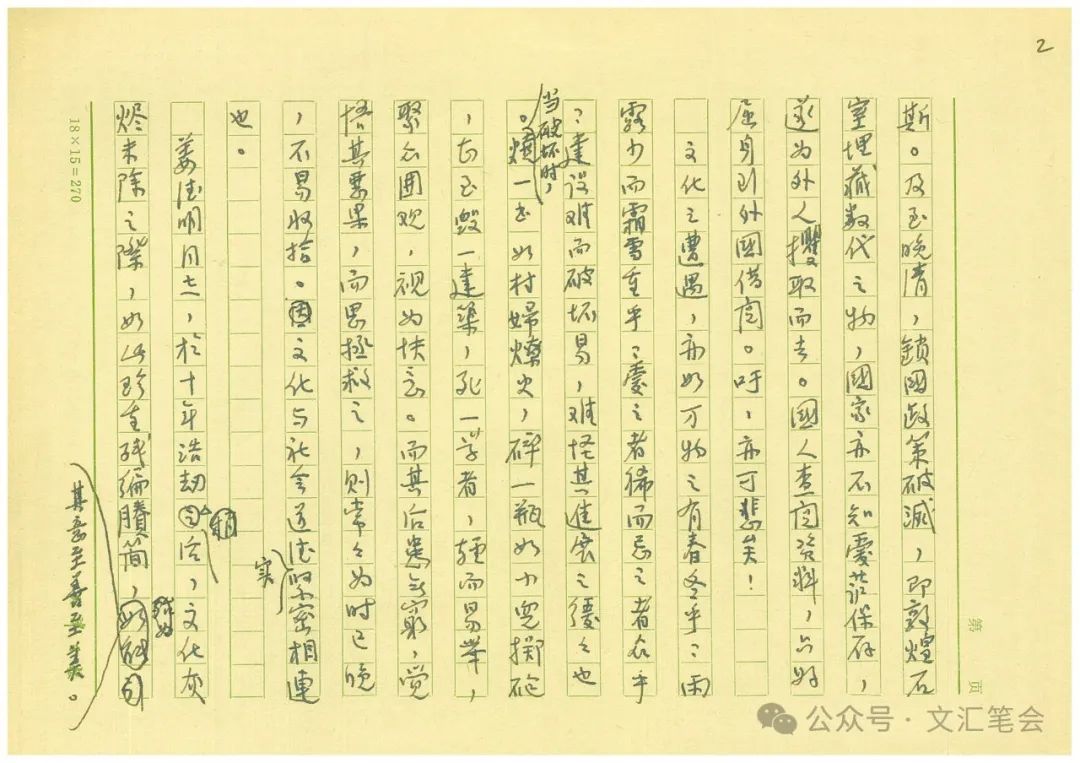 2
斯。及至晚清，鎖國政策破滅，即敦煌石
室埋藏数代之物，國家亦不知爱护保存，
遂为外人攫取而去。國人查阅资料，只好
屈身到外國借阅。吁，亦可悲矣！
文化之遭遇，亦如万物之有春冬乎；雨
露少而霜雪重乎；爱之者稀而忌之者众乎
；建设难而破坏易，难怪其進展之缓缓也
当破坏时，
。燒一书如村婦燎火，碎一瓶如小兒掷砲
，甚至毀一建築，死一学者，輕而易举，
聚众围观，视为快意。而其后患无窮，觉
悟其恶果，而思拯救之，则常常为时已晚
，不易收拾。因文化与社会道德緊密相連
实
也。
姜德明同志，於十年浩劫
稍
后，文化灰
烬未除之際，如此珍重残编賸簡，
其意至善至美。
18×15=270
第 页
公众号·文汇笔会